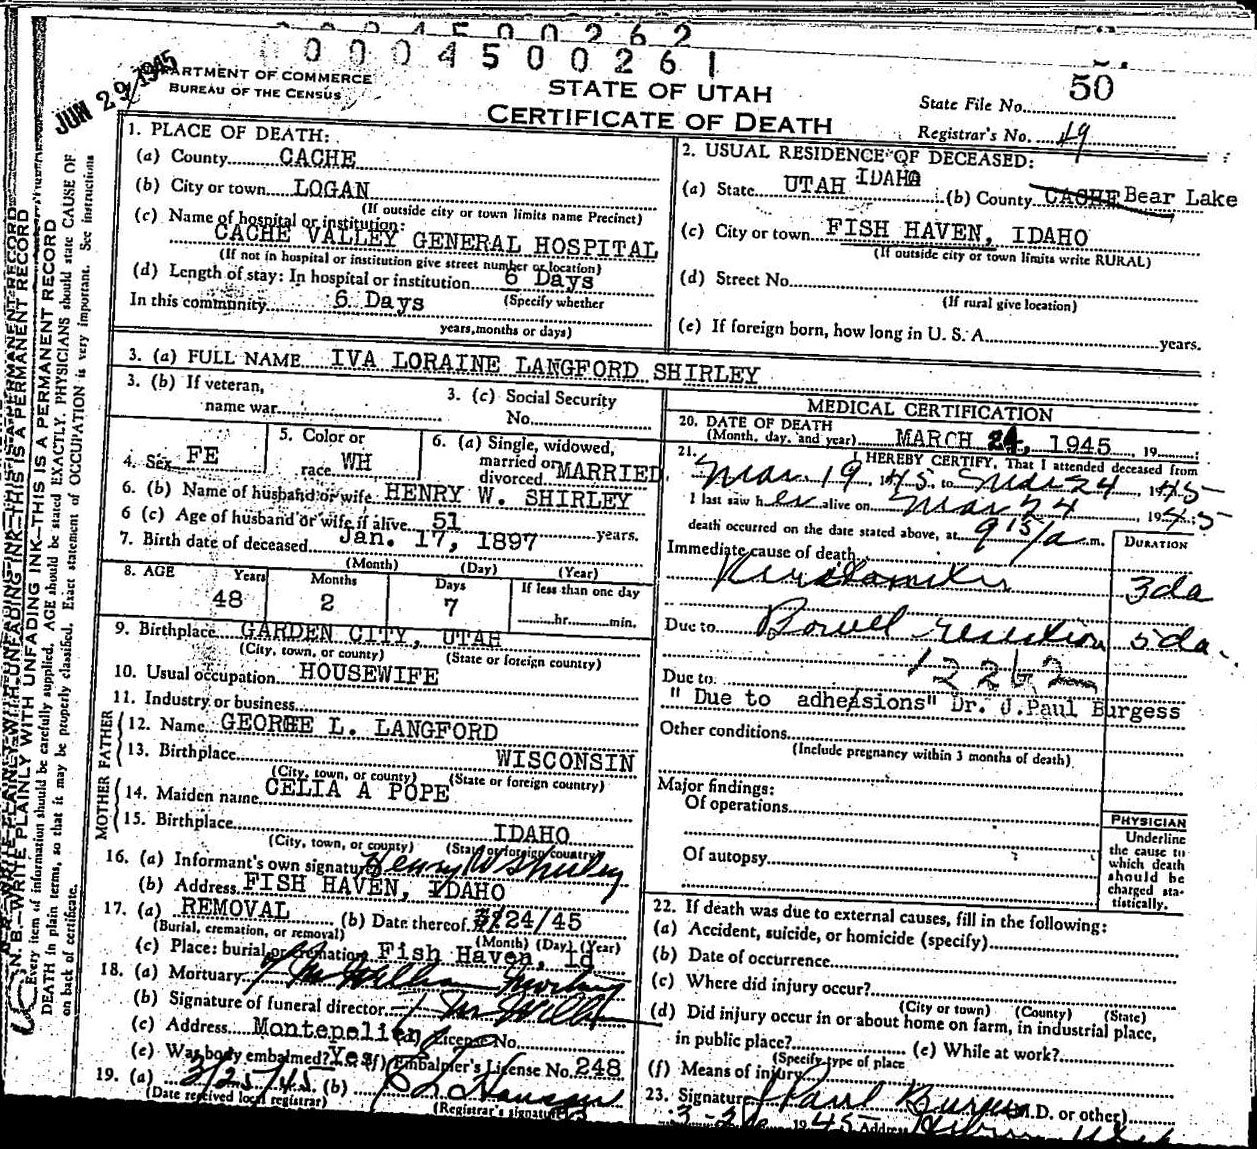 0 0 0 4 5 0 0 2 6 2
0 0 0 4 5 0 0 2 6 1
JUN 29 1945
DEPARTMENT OF COMMERCE
BUREAU OF THE CENSUS
STATE OF UTAH
CERTIFICATE OF DEATH
State File No. 50
Registrar's No. 49
N. B.—WRITE PLAINLY WITH UNFADING INK—THIS IS A PERMANENT RECORD
Every item of information should be carefully supplied. AGE should be stated EXACTLY. PHYSICIANS should state CAUSE OF
DEATH in plain terms, so that it may be properly classified. Exact statement of OCCUPATION is very important. See instructions
on back of certificate.
1. PLACE OF DEATH:
(a) County CACHE
(b) City or town LOGAN
(If outside city or town limits name Precinct)
(c) Name of hospital or institution:
CACHE VALLEY GENERAL HOSPITAL
(If not in hospital or institution give street number or location)
(d) Length of stay: In hospital or institution 6 Days
(Specify whether
In this community 6 Days
years, months or days)
2. USUAL RESIDENCE OF DECEASED:
(a) State UTAH IDAHO (b) County CACHE Bear Lake
(c) City or town FISH HAVEN, IDAHO
(If outside city or town limits write RURAL)
(d) Street No.
(If rural give location)
(e) If foreign born, how long in U. S. A. years.
3. (a) FULL NAME IVA LORAINE LANGFORD SHIRLEY
3. (b) If veteran,
name war
3. (c) Social Security
No.
4. Sex FE
5. Color or
race WH
6. (a) Single, widowed,
married or
divorced MARRIED
6. (b) Name of husband or wife HENRY W. SHIRLEY
6 (c) Age of husband or wife if alive 51 years.
7. Birth date of deceased Jan. 17, 1897
(Month) (Day) (Year)
8. AGE Years Months Days If less than one day
48 2 7 hr. min.
9. Birthplace GARDEN CITY, UTAH
(City, town, or county) (State or foreign country)
10. Usual occupation HOUSEWIFE
11. Industry or business
FATHER
12. Name GEORGE L. LANGFORD
13. Birthplace WISCONSIN
(City, town, or county) (State or foreign country)
MOTHER
14. Maiden name CELIA A POPE
15. Birthplace IDAHO
(City, town, or county) (State or foreign country)
16. (a) Informant's own signature Henry W Shirley
(b) Address FISH HAVEN, IDAHO
17. (a) REMOVAL (b) Date thereof 3/24/45
(Burial, cremation, or removal) (Month) (Day) (Year)
(c) Place: burial or cremation Fish Haven, Id
18. (a) Mortuary
(b) Signature of funeral director
(c) Address Montepelier License No.
(e) Was body embalmed? Yes (f) Embalmer's License No. 248
19. (a) 3/25/45 (b)
(Date received local registrar) (Registrar's signature)
MEDICAL CERTIFICATION
20. DATE OF DEATH
(Month, day, and year) MARCH 24, 1945 , 19
21. I HEREBY CERTIFY, That I attended deceased from
Mar 19 1945, to Mar 24, 1945
I last saw her alive on Mar 24, 1945;
death occurred on the date stated above, at 9 15/a m.
DURATION
Immediate cause of death
3 da
Due to Bowel resection 5 da.
12262
Due to
" Due to adhesions" Dr. J.Paul Burgess
Other conditions
(Include pregnancy within 3 months of death)
Major findings:
Of operations
Of autopsy
PHYSICIAN
Underline
the cause to
which death
should be
charged sta-
tistically.
22. If death was due to external causes, fill in the following:
(a) Accident, suicide, or homicide (specify)
(b) Date of occurrence
(c) Where did injury occur?
(City or town) (County) (State)
(d) Did injury occur in or about home on farm, in industrial place,
in public place? (e) While at work?
(Specify type of place
(f) Means of injury
23. Signature J Paul Burgess (M.D. or other)
1945 Address